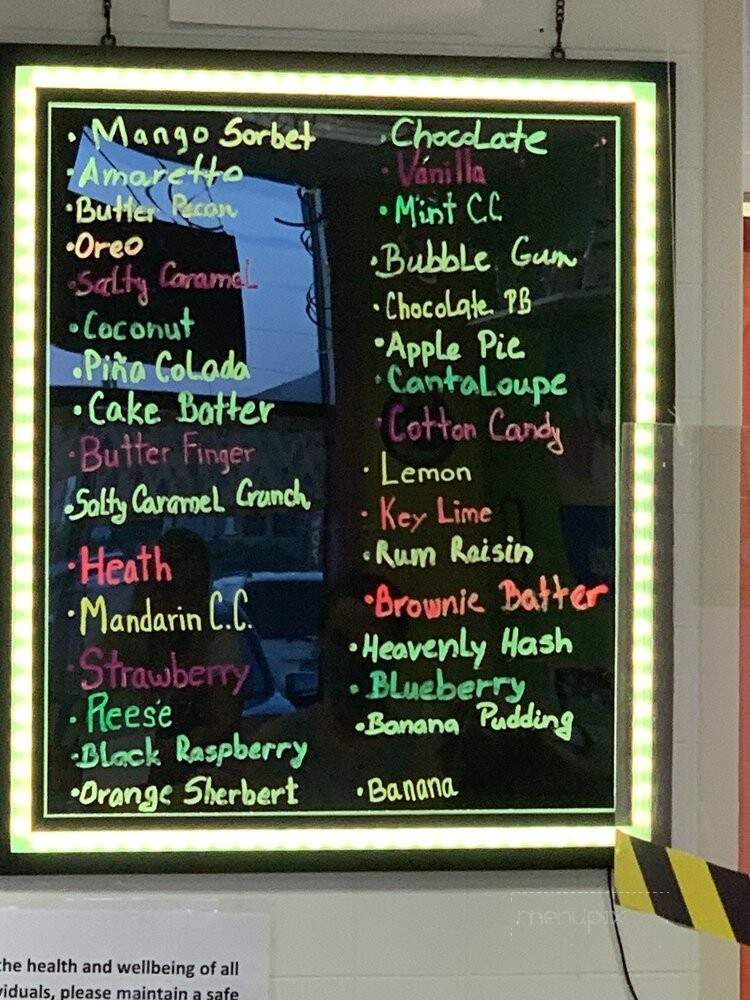 • Mango Sorbet
• Amaretto
• Butter Pecan
• Oreo
• Salty Caramel
• Coconut
• Piña Colada
• Cake Batter
• Butter Finger
• Salty Caramel Crunch
• Heath
• Mandarin C.C.
• Strawberry
• Reese
• Black Raspberry
• Orange Sherbert
• Chocolate
• Vanilla
• Mint C.C
• Bubble Gum
• Chocolate PB
• Apple Pie
• Cantaloupe
• Cotton Candy
• Lemon
• Key Lime
• Rum Raisin
• Brownie Batter
• Heavenly Hash
• Blueberry
• Banana Pudding
• Banana
menupix
the health and wellbeing of all
viduals, please maintain a safe